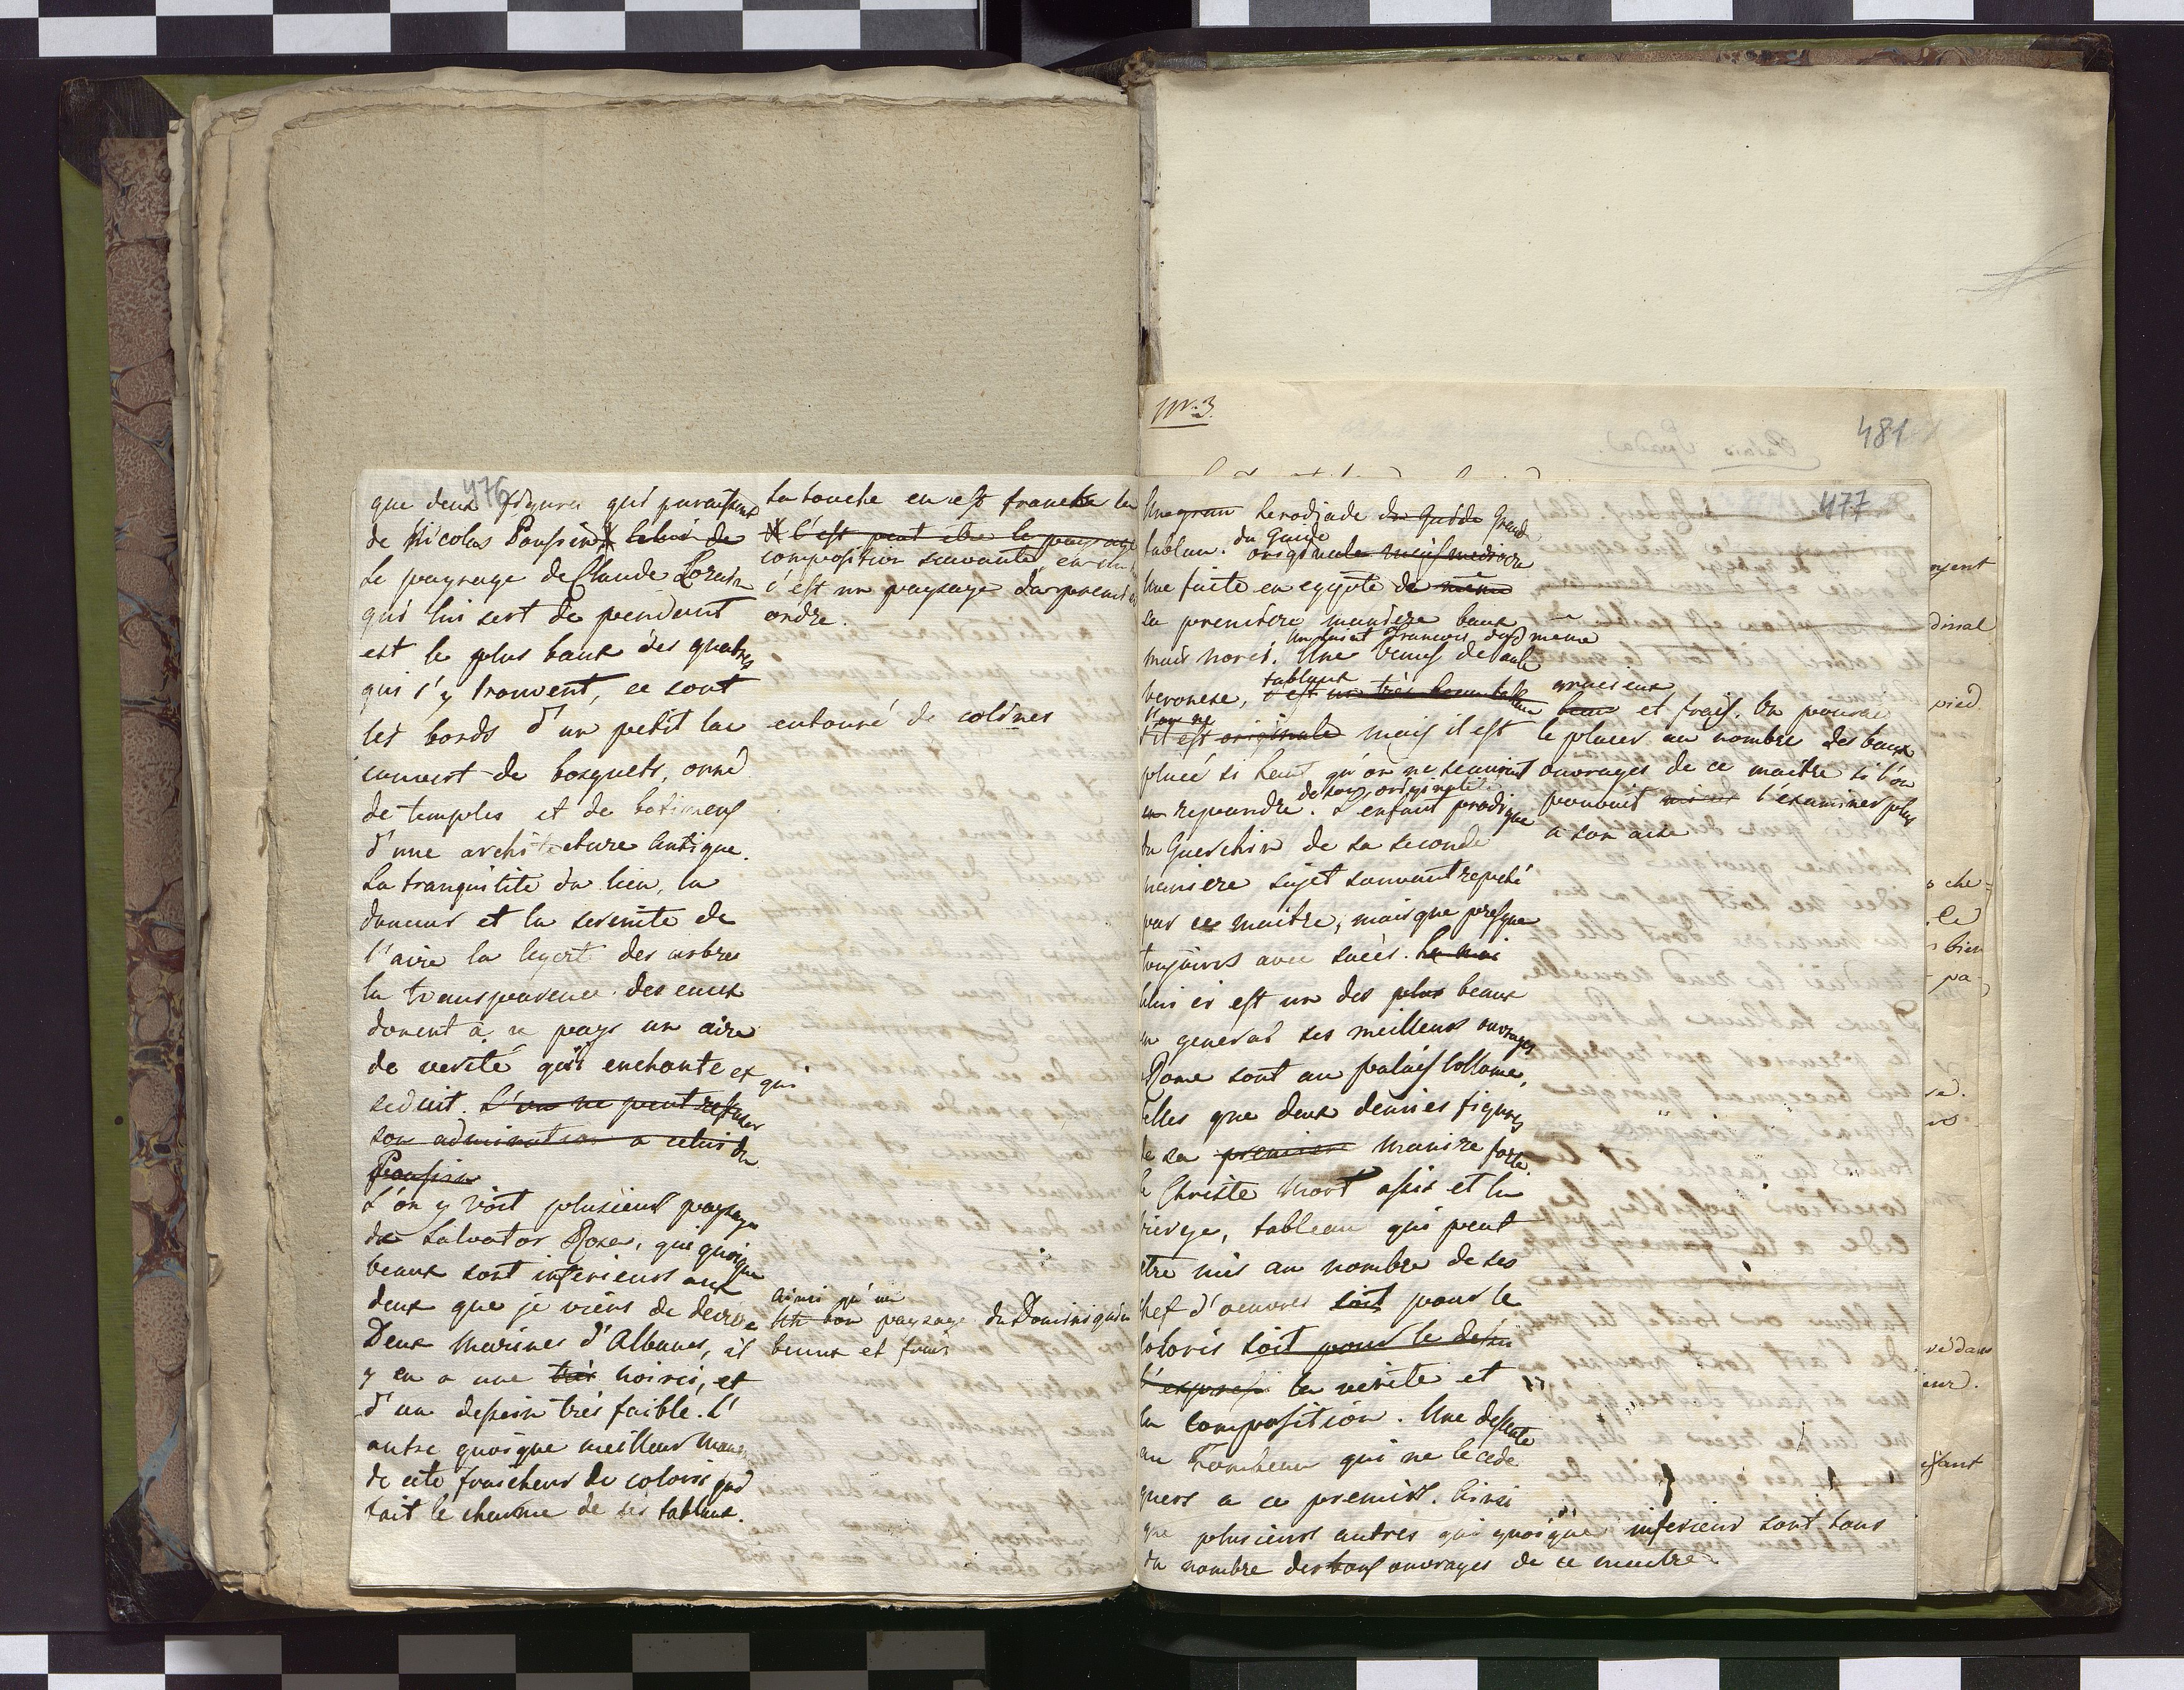 476
que deux figures qui paraissent
de Nicolas Poussin celui de
Le paysage de Claude Lorain
qui lui sert de pendant
est le plus baux des quatres
qui s'y trouvent, ce sont
les bords d'un petit lac entouré de colines
couvert de bosquets, orné
de temples et de batimens
d'une architecture antique.
La tranquilité du lieu, la
douceur et la serenité de
l'aire la legerté des arbres
la transparence des eaux
donent à ce pays un aire
de verité qui enchante et qui
seduit. L'on ne peut refuser
son admiration a celui du
Poussin
L'on y voit plusieurs paysages
de Salvator Rosa, qui quoique
beaux sont inferieurs aux
deux que je viens de decrire
Deux Marines d'Albano, il
y en a une très noirci, et
d'un dessein très faible. L'
autre quoique meilleur manque
de cete fraicheur de coloris qui
fait le charme de ses tableaux.
La touche en est franche la
C'est peut etre le paysage
composition savante, en un
c'est un paysage du premier
ordre.
ainsi qu'un
Un bon paysage du Dominiquin
beaux et frais
Nr. 3.
481
477
Une gran Herodiade du Guide grand
tableau. du Guide originale mais mediocre
Une fuite en egypte de même
sa premiere maniere beau
mais noirci. Une Venus de Paule
un saint François du même
veronese, c'est un très beau tableau
tableaux gracieux beau et frais. On pourai
l'on ne
s'il est originale mais il est le placer au nombre des beaux
placé si haut qu'on ne sauroit ouvrages de ce maitre si l'on
en repondre. de son originalité L'enfant prodigue pouvoit mieux l'examiner plus
du Guerchin de sa seconde a son aise
maniere sujet souvant repeté
par ce maitre, mais que presque
toujours avec succès. Le mai
lui ci est un des plus beaux
en general ses meilleurs ouvrages
Rome sont au palais Collona,
telles que deux demies figures
de sa premiere maniere forte
le Christe Mort assis et la
vierge, tableau qui peut
etre mis au nombre de ses
chef d'oeuvres soit pour le
coloris soit pour le dessin
l'expression la verité et
la composition. Une descente
au Tombeau qui ne le cede
guers a ce premier. Ainsi
que plusieurs autres qui quoique inferieur sont tous
du nombre des bons ouvrages de ce maitre.